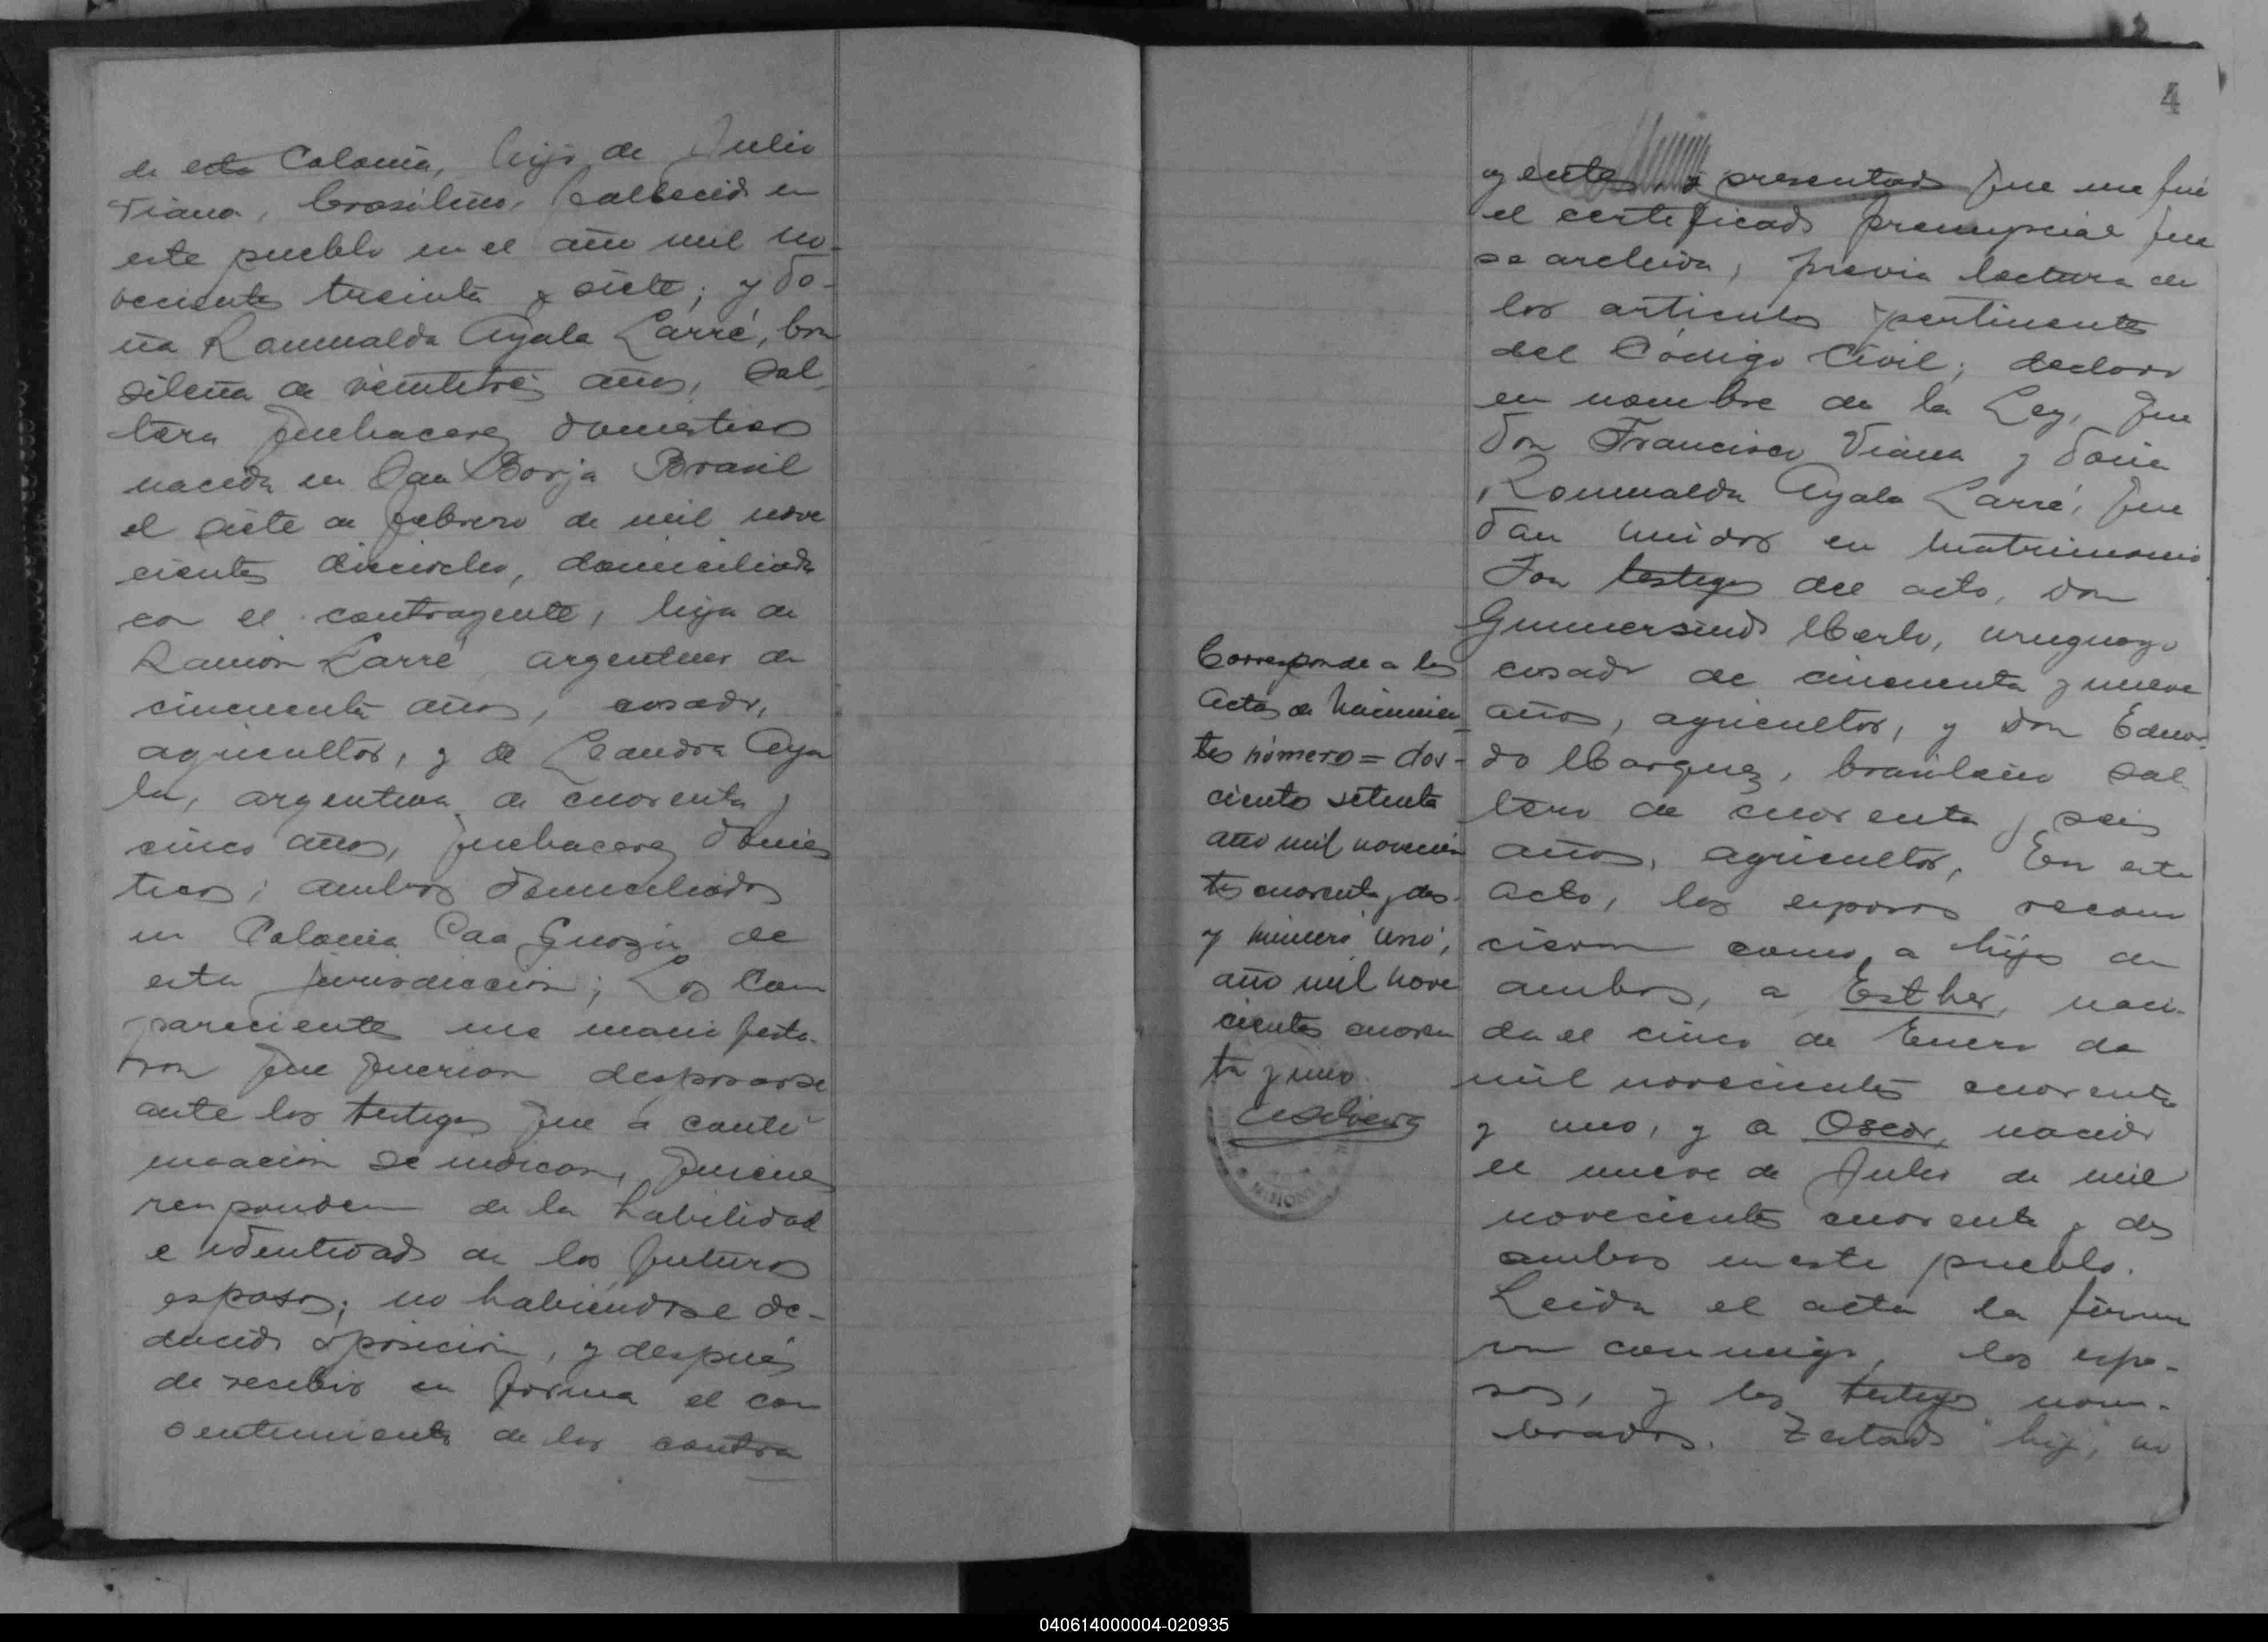 de esta Colonia, hijo de Julio
Viana, brasileño, fallecido en
este pueblo en el año mil no-
vecientos treinta y siete; y do-
ña Romualda Ayala Larré, bra
sileña de veintitres años, sol
tera quehaceres domesticos
nacida en San Borja Brasil
el siete de febrero de mil nove
cientos dieciocho, domiciliada
con el contrayente, hija de
Ramón Larré argentino de
cincuenta años, casado,
agricultor, y de Leandra Aya
la, argentina de cuarenta y
cinco años, quehaceres domes
ticos; ambos domiciliados
en Colonia Caa Guazú de
esta jurisdiccion; Los Com
parecientes me manifesta-
ron que querian desposarse
ante los testigos que a conti
nuación se indican, quienes
responden de la habilidad
e identidad de los futuros
esposos; no habiéndose de-
ducido oposición, y después
de recibir en forma el con
sentimiento de los contra
4
yentes y presentado que me fué
el certificado prenupcial que
se archiva, previa lectura de
los articulos pertinentes
del Código Civil; declaro
en nombre de la Ley, que
don Francisco Viana y doña
Romualda Ayala Larré, que
dan unidos en matrimonio
Son testigos del acto, don
Gumersindo Merlo, uruguayo
casado de cincuenta y nueve
años, agricultor, y don Eduar-
do Marquez, brasileño sol
tero de cuarenta y seis
años, agricultor, En este
acto, los esposos recono
cieron como a hijos de
ambos, a Esther, naci-
da el cinco de Enero de
mil novecientos cuarenta
y uno, y a Oscar, nacido
el nueve de Julio de mil
novecientos cuarenta y dos
ambos en este pueblo.
Leida el acta la firma
ron conmigo, los espo-
sos, y los testigos nom-
brados. Testado hijo, no
Corresponde a las
Actas de Nacimien-
tos número = dos-
cientos setenta
año mil novecien
tos cuarenta y dos
y número uno,
año mil nove
cientos cuaren
ta y uno.
MISIONES